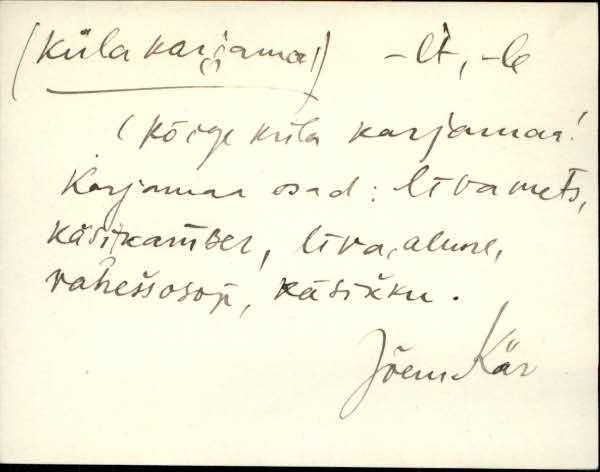 (Küla karjamai) -lt, -le
(kõige küla karjamaa!
Karjamaa osad: līvamets,
käsikamber, līva,alune,
vahessosoo, käsižku.
Jõem Kär